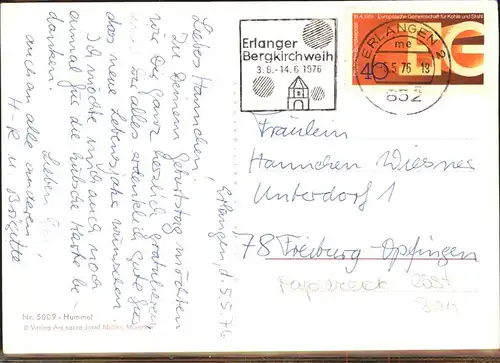 Erlangen, d. 5.5.76
Liebes Hannchen!
Zu Deinem Geburtstag möchten
wir Dir ganz herzlich gratulieren
u. Dir alles erdenklich gute für
das neue Lebensjahr wünschen.
Ich möchte mich auch noch
einmal für die hübsche Karte be-
danken.
Lieben
auch an alle anderen
H-R u Brigitte
Nr. 5009 - Hummel
© Verlag Ars sacra Josef Müller, München
Erlanger
Bergkirchweih
3.6.-14.6 1976
ERLANGEN 2
me
5.5.76 18
852
18.4.1951 Europäische Gemeinschaft für Kohle und Stahl
40
Fräulein
Hannchen Wiesner
Unterdorf 1
78 Freiburg-Opfingen